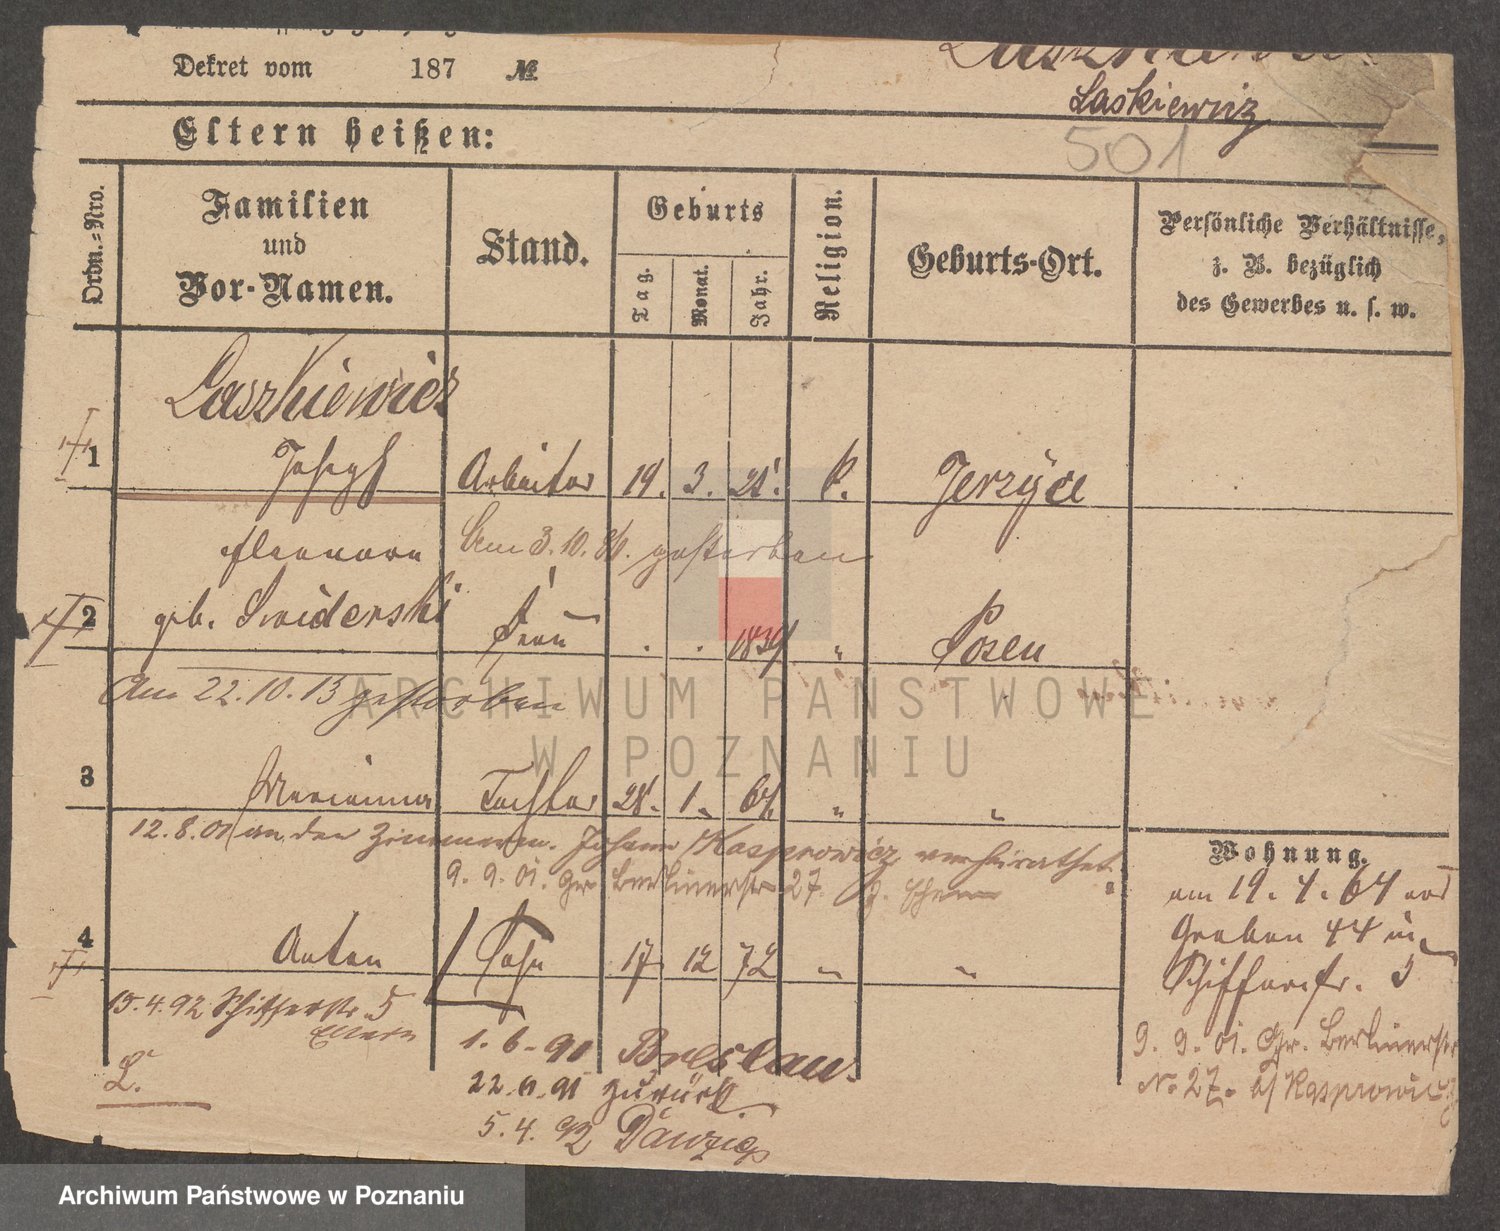 Dekret vom 187 №
Laskiewicz
501
Eltern heißen:
Ordn.=Nro.
Familien
und
Vor-Namen.
Stand.
Geburts
Tag.
Monat.
Jahr.
Religion.
Geburts-Ort.
Persönliche Verhältnisse,
z. B. bezüglich
des Gewerbes u. s. w.
Laszkiewicz
1 Joseph Arbeiter 19. 3. k. Jerzyce
Eleonora Am 3. 10. 86. gestorben
2 geb. Swiderski Frau . . " Posen
Am 22. 10. 13 gestorben
3 Marianna Tochter 28. 1. 67. " "
12. 8. 01 an den Zimmerm. Johann Kasprowicz verheirathet.
9. 9. 01. Gr. Berlinerstr 27.
Wohnung.
am 19. 4. 64
Graben 44 in
Schifferstr. 5
9. 9. 01. Gr. Berlinerstr
No 27. b/ Kasprowicz
4 Anton Sohn 17 12 72 " "
15. 4. 92 Schifferstr. 5
Eltern
L.
1. 6. 91 Breslau.
22. 6. 91 zurück.
5. 4. 92 Danzig
ARCHIWUM PAŃSTWOWE
W POZNANIU
Archiwum Państwowe w Poznaniu